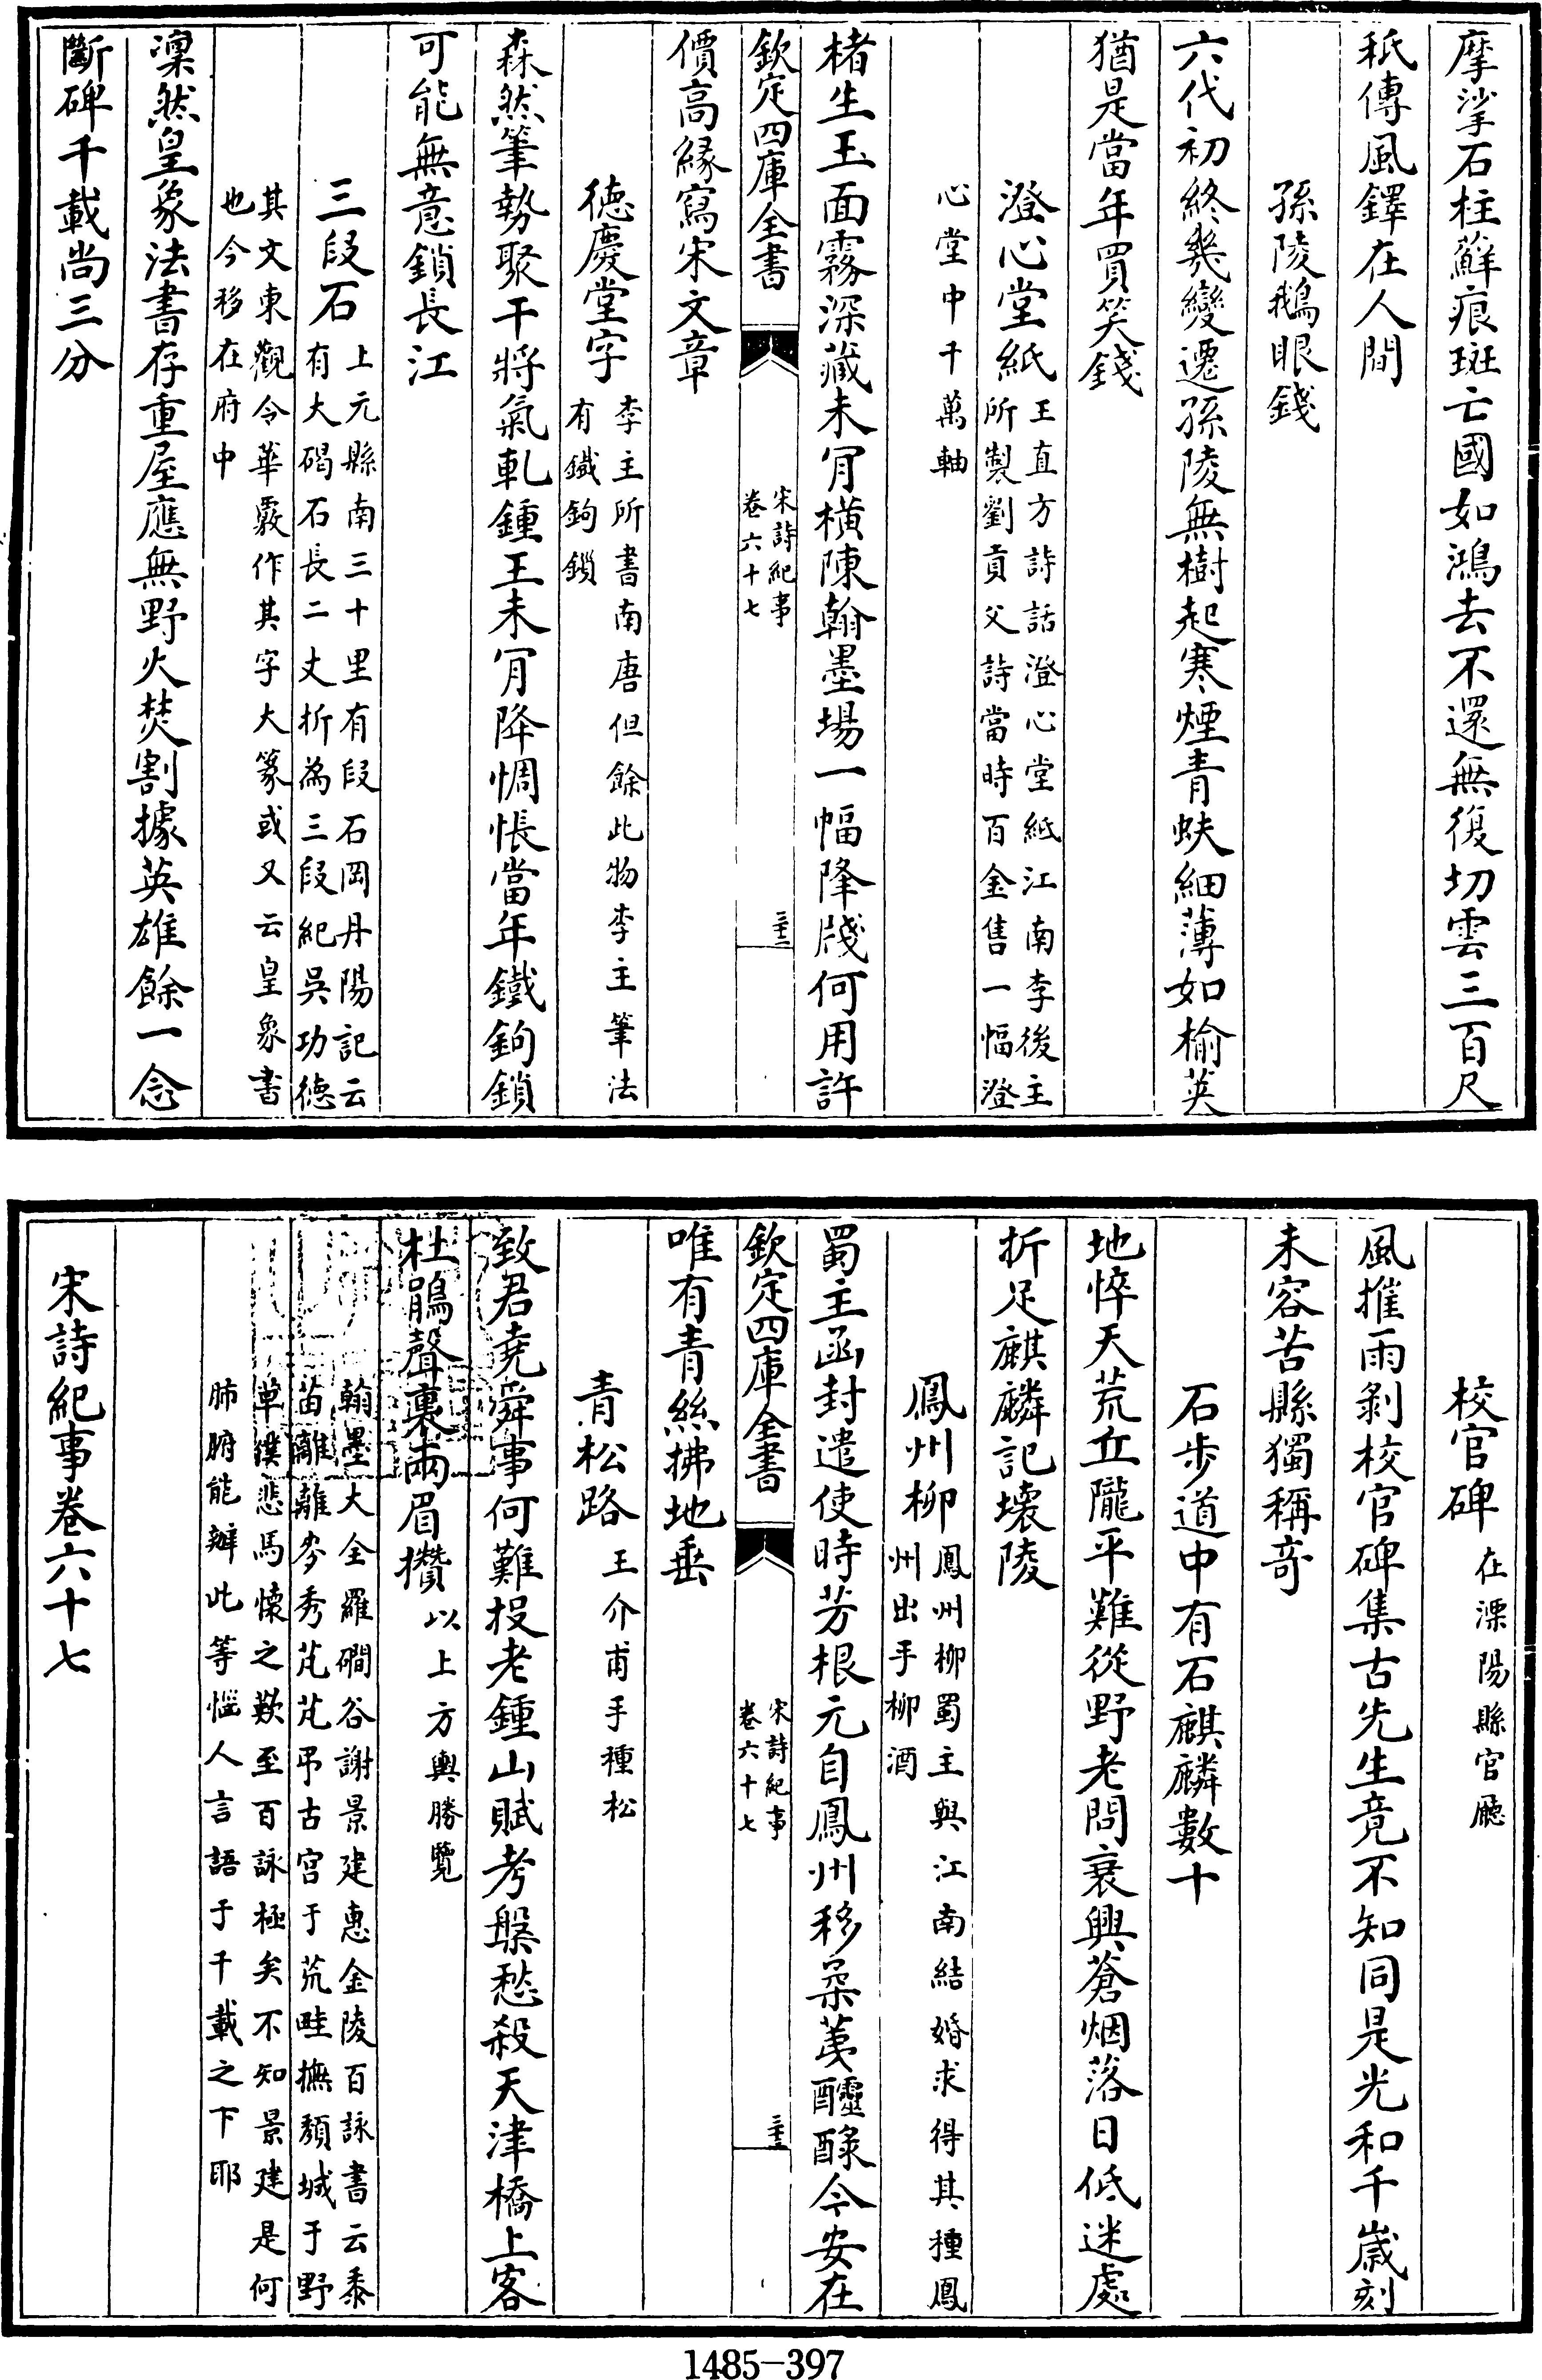 摩挲石柱蘚痕斑亡國如鴻去不還無復切雲三百尺
秖傳風鐸在人間
孫陵鵝眼錢
六代初終幾變遷孫陵無樹起寒煙青蚨細薄如榆莢
猶是當年買笑錢
澄心堂紙
王直方詩話澄心堂紙江南李後主
所製劉貢父詩當時百金售一幅澄
心堂中千萬軸
楮生玉面霧深藏未肎橫陳翰墨場一幅降牋何用許
欽定四庫全書
宋詩紀事
卷六十七
三十二
價高緣寫宋文章
德慶堂字
李主所書南唐但餘此物李主筆法
有鐵鉤鎖
森然筆勢聚干將氣軋鍾王未肎降惆悵當年鐵鉤鎖
可能無意鎖長江
三段石
上元縣南三十里有段石岡丹陽記云
有大碣石長二丈折為三段紀吳功德
其文東觀令華覈作其字大篆或又云皇象書
也今移在府中
凜然皇象法書存重屋應無野火焚割據英雄餘一念
斷碑千載尚三分
校官碑
在溧陽縣官廳
風摧雨剝校官碑集古先生竟不知同是光和千歲刻
未容苦縣獨稱奇
石步道中有石麒麟數十
地悴天荒丘隴平難從野老問衰興蒼烟落日低迷處
折足麒麟記壊陵
鳳州柳
鳳州柳蜀主與江南結婚求得其種鳳
州出手柳酒
蜀主函封遣使時芳根元自鳳州移柔荑醽醁今安在
欽定四庫全書
宋詩紀事
卷六十七
三十三
唯有青絲拂地垂
青松路
王介甫手種松
致君堯舜事何難投老鍾山賦考槃愁殺天津橋上客
杜鵑聲裏兩眉攢
以上方輿勝覽
翰墨大全羅磵谷謝景建惠金陵百詠書云黍
苗離離麥秀芃芃弔古宫于荒畦撫頽城于野
草僕悲馬懷之歎至百詠極矣不知景建是何
肺腑能辦此等惱人言語于千載之下耶
宋詩紀事卷六十七
1485-397